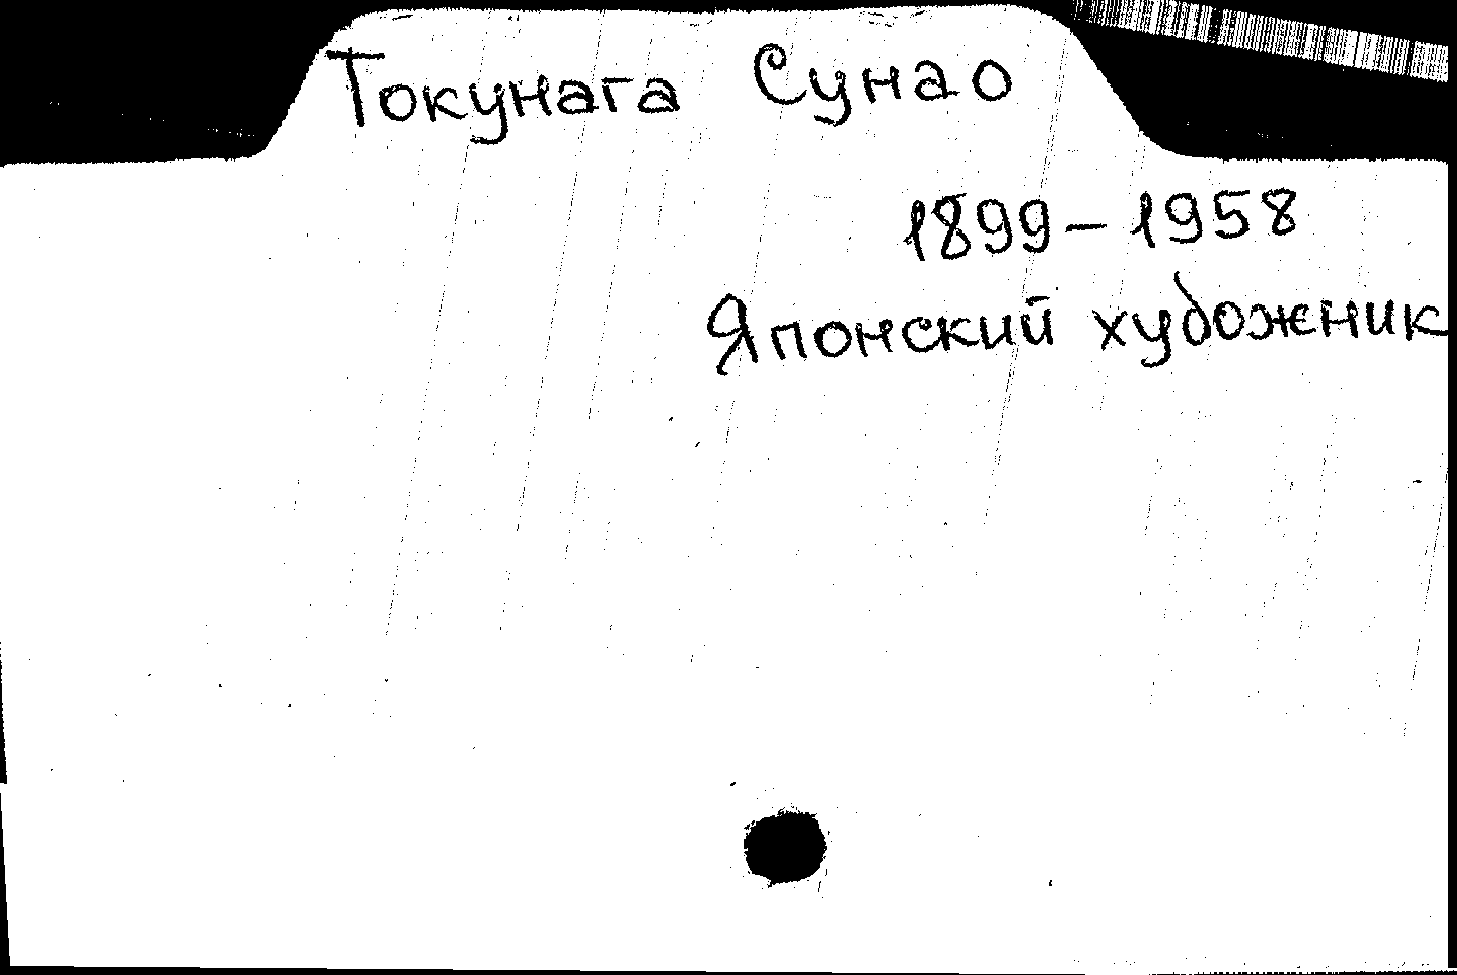 Токунага Сунао
1899-1958
Японский художник